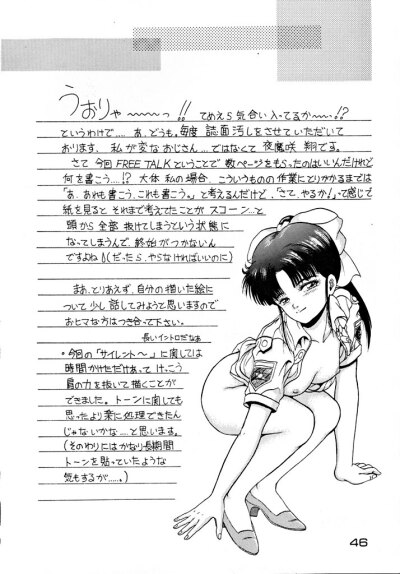 うおりゃ〜〜〜っ!! てめえら気合い入ってるか〜…!?
というわけで…… あ、どうも。毎度 誌面汚しをさせていただいて
おります、私が変なおじさん……ではなくて 夜魔咲 翔です。
さて 今回 FREE TALK ということで 数ページをもらったのはいいんだけれど
何を書こう…!? 大体 私の場合、こういうものの 作業にとりかかるまでは
「あ、あれも書こう、これも書こう。」と考えるんだけど、「さて、やるか!」って感じで
紙を見ると それまで考えてたことが スコーン…と
頭から 全部 抜けてしまうという 状態に
なってしまうんで、終始がつかないん
ですよね♪(だったら、やらなければいいのに)
まあ、とりあえず、自分の描いた絵に
ついて少し話してみようと思いますので
おヒマな方はつき合って下さい。
長いイントロだなぁ
・今回の「サイレント〜」に関しては
時間かけただけあって けっこう
肩の力を抜いて描くことが
できました。トーンに関しても
思ったより楽に処理できたん
じゃないかな……と思います。
(そのわりにはかなり長期間
トーンを貼っていたような
気もするが……。)
46